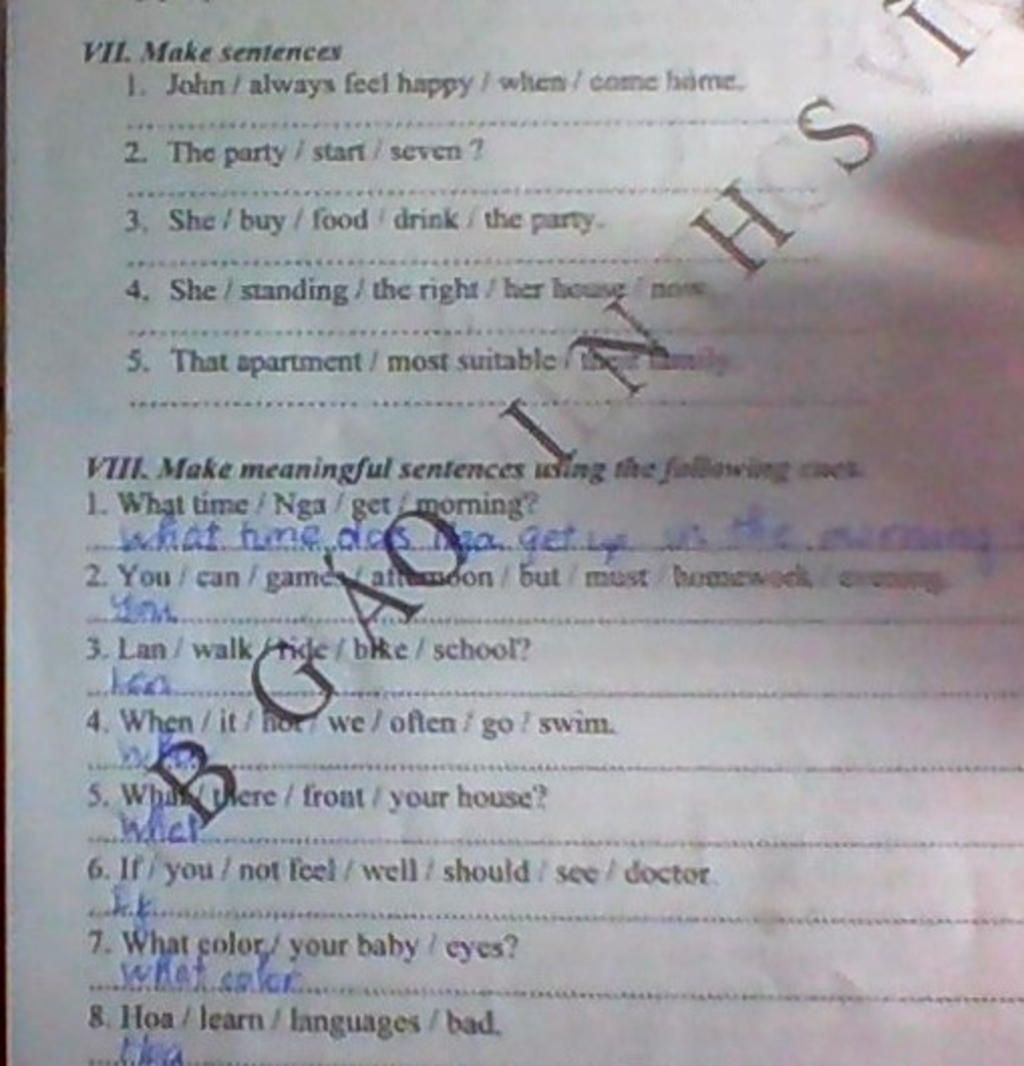 VII. Make sentences
1. John / always feel happy / when / come home.
2. The party / start / seven ?
3. She / buy / food / drink / the party.
4. She / standing / the right / her house / now.
5. That apartment / most suitable / family.
VIII. Make meaningful sentences using the following cues.
1. What time / Nga / get / morning?
What time does Nga get up in the morning
2. You / can / games / afternoon / but / must / homework / evening.
You
3. Lan / walk / ride / bike / school?
Lan
4. When / it / hot / we / often / go / swim.
When
5. What / there / front / your house?
What
6. If / you / not feel / well / should / see / doctor.
7. What color / your baby / eyes?
What color
8. Hoa / learn / languages / bad.
Hoa
B GÁO INH S